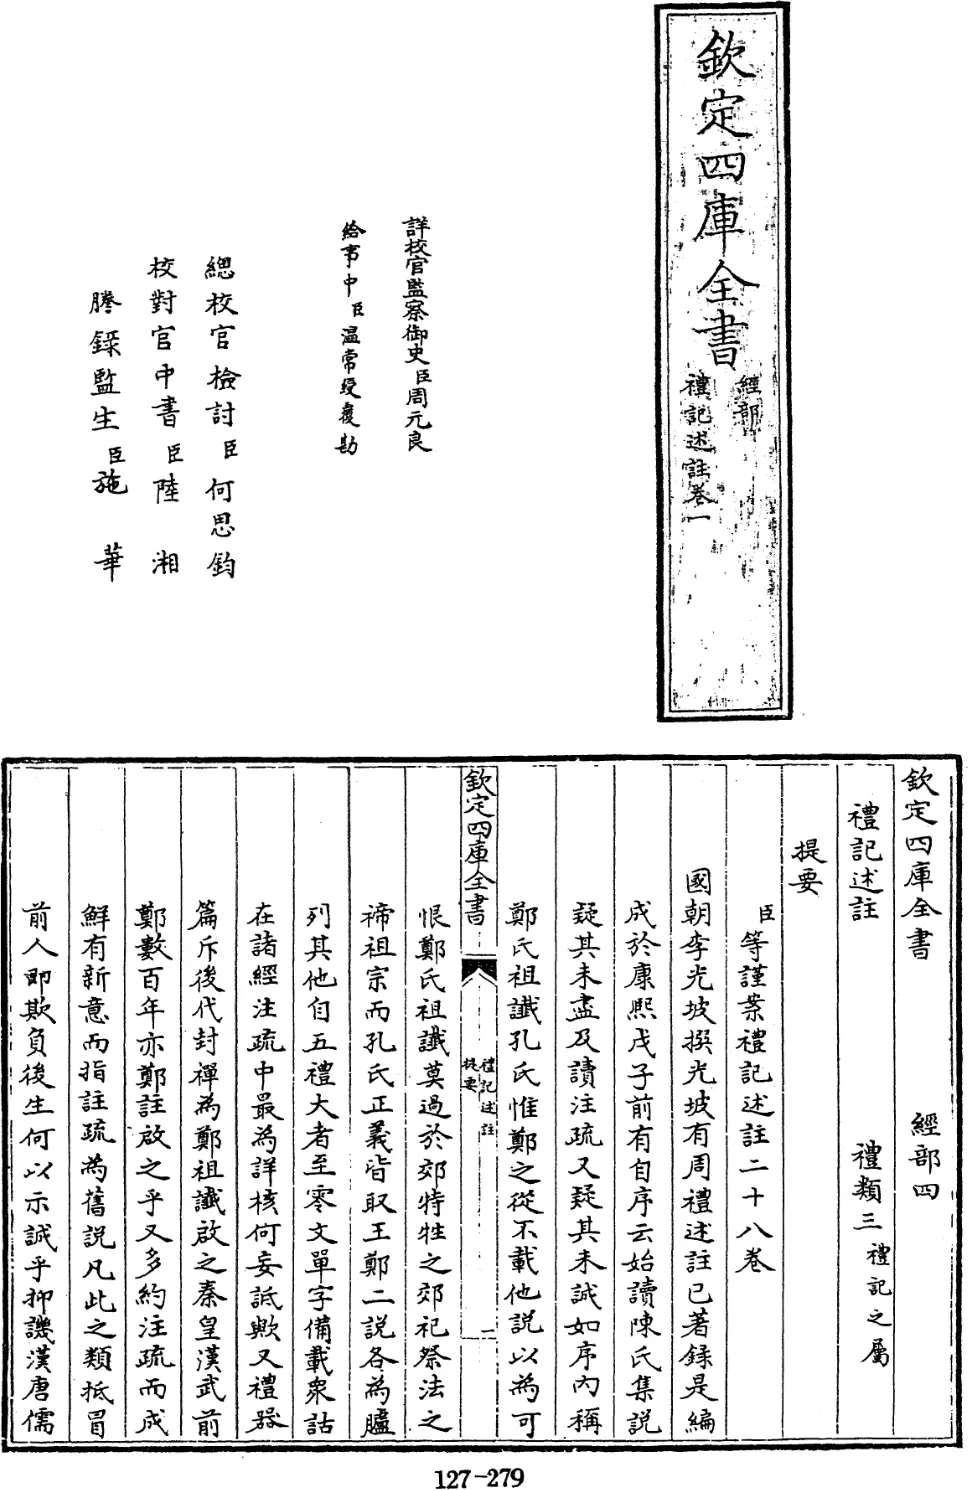 欽定四庫全書
經部
禮記述註卷一
詳校官監察御史臣周元良
給事中臣溫常綬覆勘
總校官檢討臣何思鈞
校對官中書臣陸湘
謄錄監生臣施華
欽定四庫全書 經部四
禮記述註 禮類三 禮記之屬
提要
臣等謹案禮記述註二十八卷
國朝李光坡撰光坡有周禮述註已著錄是編
成於康熙戊子前有自序云始讀陳氏集說
疑其未盡及讀注疏又疑其未誠如序內稱
鄭氏祖讖孔氏惟鄭之從不載他說以為可
欽定四庫全書 禮記述註 提要 一
恨鄭氏祖讖莫過於郊特牲之郊祀祭法之
禘祖宗而孔氏正義皆取王鄭二說各為臚
列其他自五禮大者至零文單字備載衆詁
在諸經注疏中最為詳核何妄詆歟又禮器
篇斥後代封禪為鄭祖讖啟之秦皇漢武前
鄭數百年亦鄭註啟之乎又多約注疏而成
鮮有新意而指註疏為舊說凡此之類抵冒
前人即欺負後生何以示誠乎抑譏漢唐儒
127-279